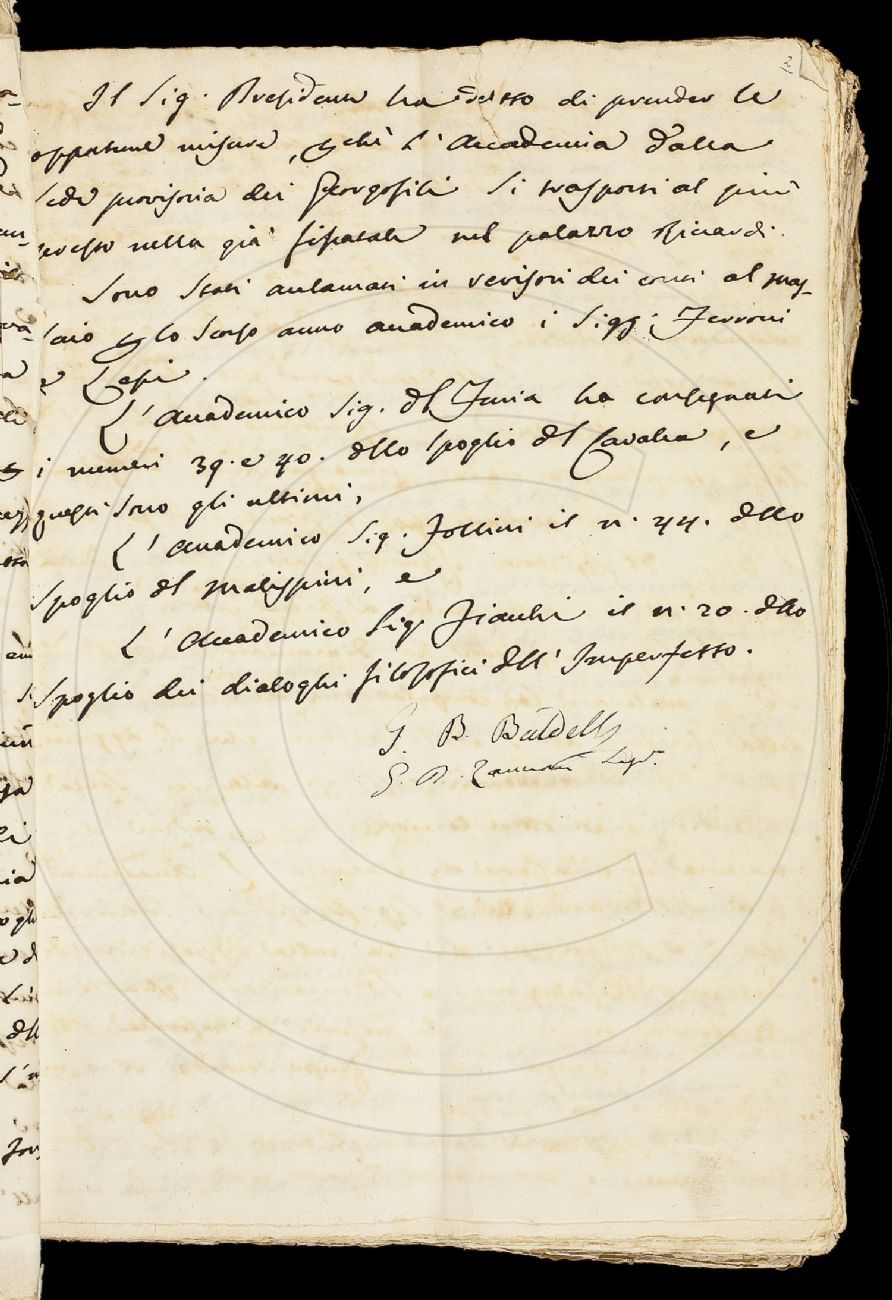 2
Il Sig. Presidente ha detto di prender le
opportune misure, perchè l'Accademia dalla
Sede provisoria dei Georgofili si trasporti al più
presto nella già fissatale nel palazzo Riccardi.
Sono stati acclamati in revisori dei conti al Mas-
saio per lo scorso anno accademico i Sigg: Ferroni
e Lessi.
L'Accademico Sig. del Furia ha consegnati
i numeri 39. e 40. dello Spoglio del Cavalca, e
questi sono gli ultimi,
L'Accademico Sig. Follini il n. 44. dello
Spoglio del Malispini, e
L'Accademico Sig. Fiacchi il n. 20. dello
Spoglio dei dialoghi filosofici dell'Imperfetto.
G. B. Baldelli
G. B. Zannoni Segr.